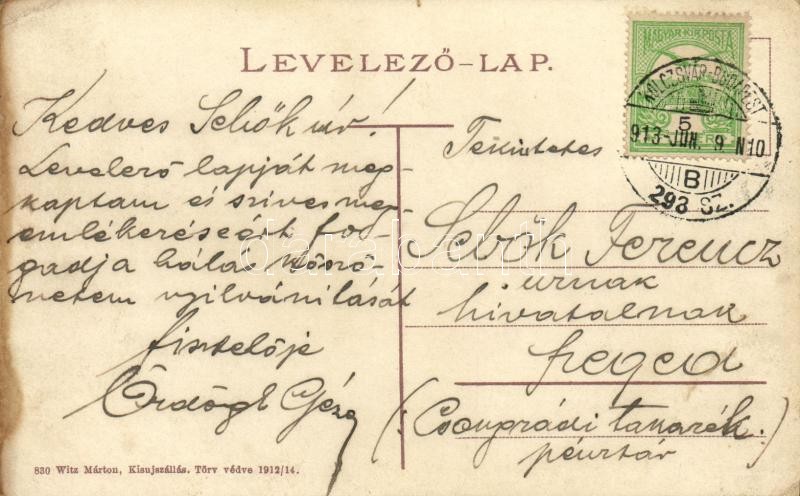 LEVELEZŐ-LAP.
MAGYAR KIR. POSTA
KOLOZSVÁR-BUDAPEST
5
913-JUN. 9 N10
B
293 SZ.
Kedves Sebők úr!
Levelező lapját meg-
kaptam és szíves meg-
emlékezéséért fo-
gadja hálás köszö-
netem nyilvánítását
tisztelője
Ördögh Géza
Tekintetes
Sebők Ferencz
úrnak
hivatalnak
Szeged
(Csongrádi takarék.)
pénztár
830 Witz Márton, Kisujszállás. Törv védve 1912/14.
darabanth